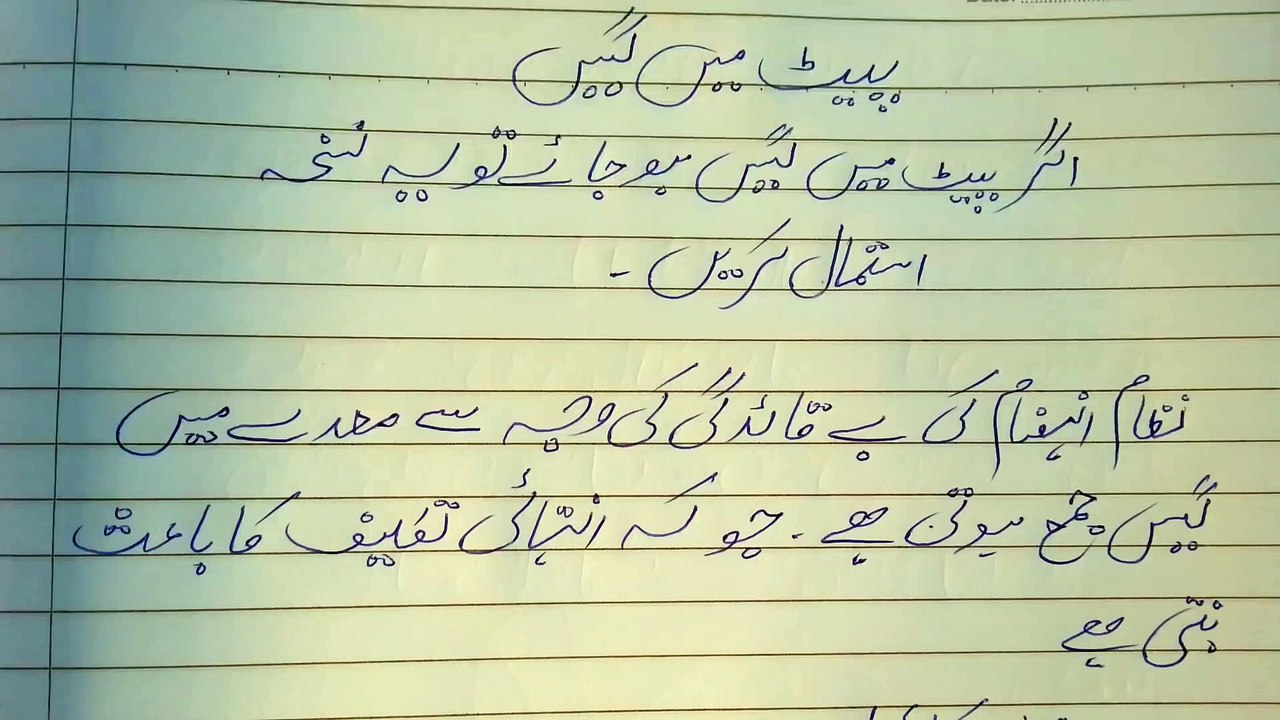 پیٹ میں گیس
اگر پیٹ میں گیس ہو جائے تو یہ نسخہ
استمال کریں -
نظام انہضام کی بے قائدگی کی وجہ سے معدے میں
گیس جمع ہوتی ہے ۔ جو کہ انتہائی تقلیف کا باعث
بنتی ہے